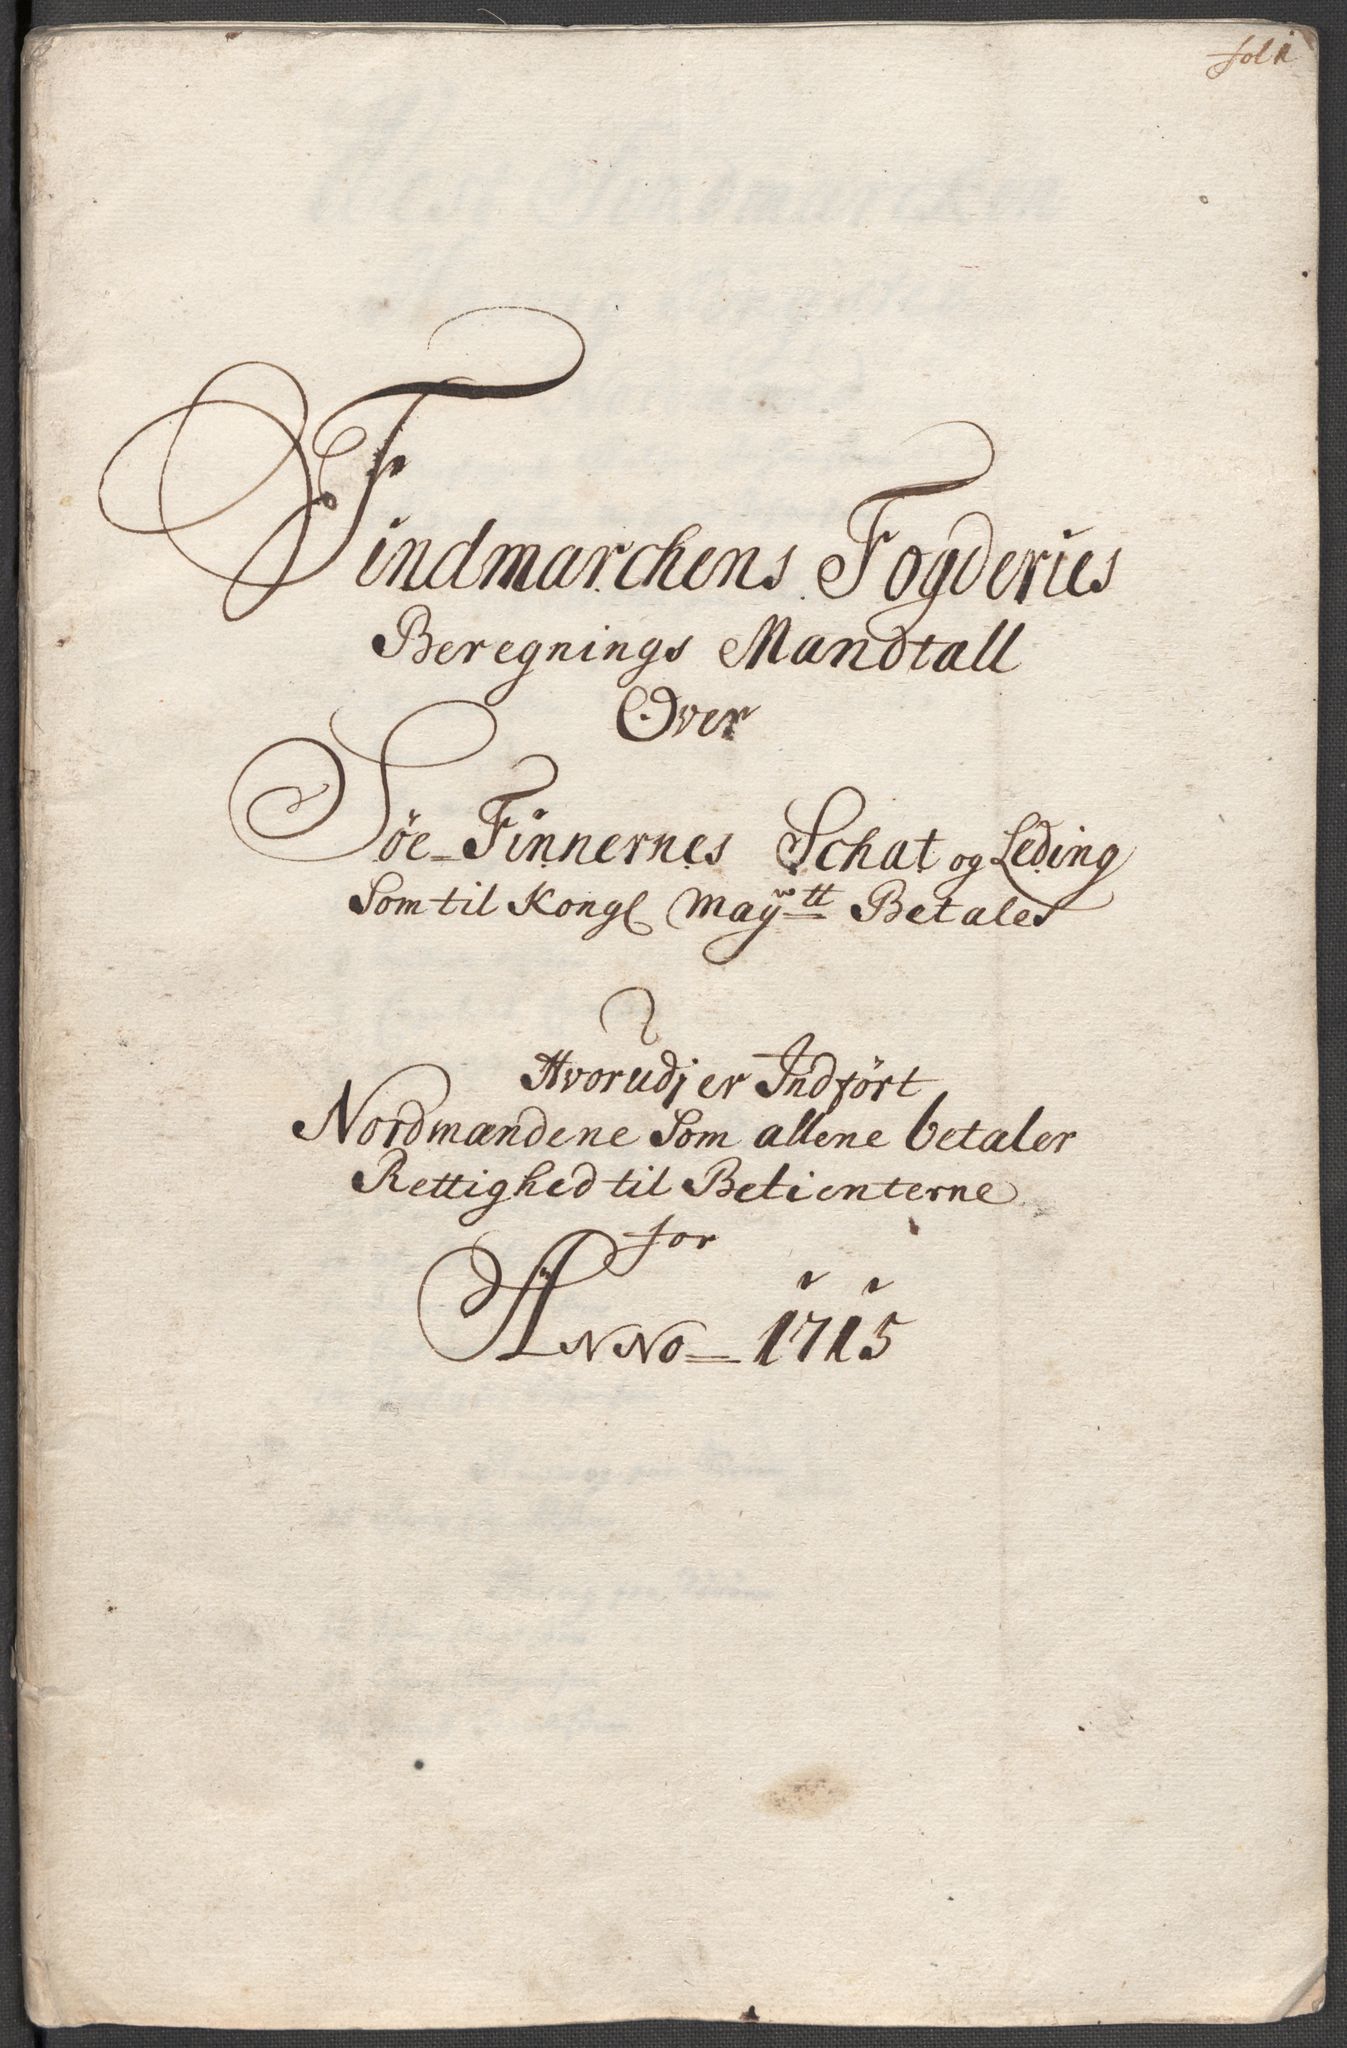 fol 1
Findmarchens Fogderies
Beregnings Mandtall
Over
Søe-Finnernes Schat og Leding
Som til Kongl Mayᵗᵗ Betales
Hvorudj er Indført
Nordmændene Som allene betaler
Rettighed til Betienterne
for
ANNO 1715